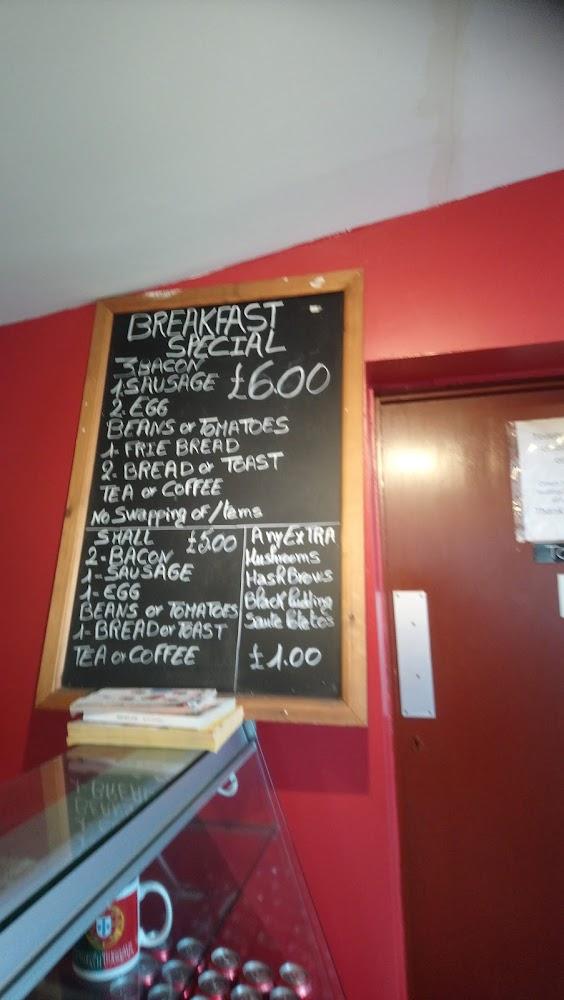 BREAKFAST
SPECIAL
3 BACON
1. SAUSAGE £6.00
2. EGG
BEANS or TOMATOES
1 FRIE BREAD
2- BREAD or TOAST
TEA or COFFEE
No Swapping of Items
SMALL £5.00
2-BACON
1-SAUSAGE
1-EGG
BEANS or TOMATOES
1-BREAD or TOAST
TEA or COFFEE
Any ExTRA
Mushrooms
Hash Brows
Black Pudding
Saute
£1.00